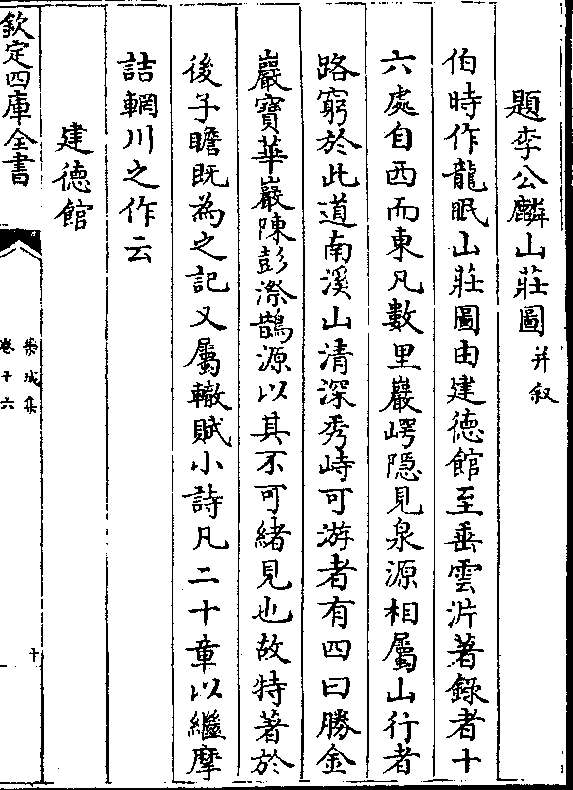 題李公麟山莊圖并叙
伯時作龍眠山莊圖由建德館至垂雲沜著錄者十
六處自西而東凡數里巖崿隠見泉源相屬山行者
路窮於此道南溪山清深秀峙可游者有四曰勝金
巖寶華巖陳彭漈鵲源以其不可緒見也故特著於
後子瞻既為之記又屬轍賦小詩凡二十章以繼摩
詰輞川之作云
建德館
欽定四庫全書
欒城集
卷十六
十